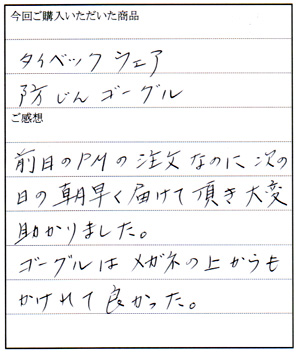 今回ご購入いただいた商品
タイベックウェア
防じんゴーグル
ご感想
前日のPMの注文なのに次の
日の朝早く届けて頂き大変
助かりました。
ゴーグルはメガネの上からも
かけれて良かった。